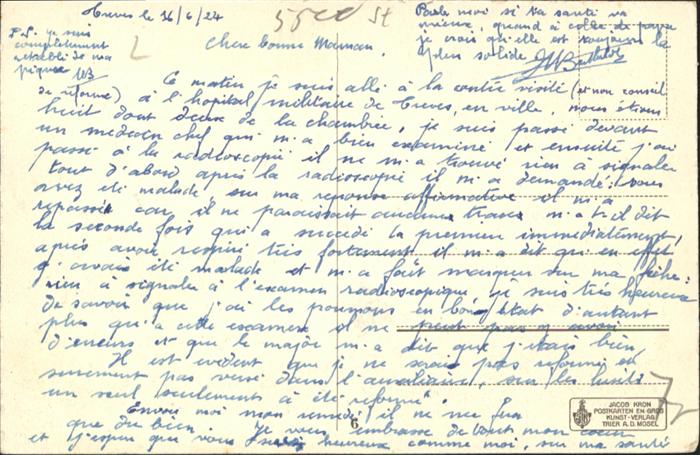 Treves le 16/6/24
55cc St
P.S. je suis
complètement
rétabli de ma
piqure
WB
Parle moi si ta santé va
mieux, quand à celle de papa
je crois qu'elle est toujours la
plus solide
Chère bonne Maman,
Ce matin je suis allé à la contre visite (et non conseil
de réforme) à l'hopital militaire de Treves, en ville, nous étions
huit dont deux de la chambrée, je suis passé devant
un médecin chef qui m'a bien examiné et ensuite j'ai
passé à la radioscopie il ne m'a trouvé rien à signaler
tout d'abord, après la radioscopie il m'a demandé: vous
avez été malade sur ma reponse affirmative il m'a
repassé car il ne paraissait aucune trace m'a t-il dit
la seconde fois qui a succédé la première immédiatement,
après avoir respiré très fortement il m'a dit qu'en effet
j'avais été malade et m'a fait marquer sur ma fiche:
rien à signaler à l'examen radioscopique, je suis très heureux
de savoir que j'ai les poumons en bon état d'autant
plus qu'a cette examen il ne peut pas y avoir
d'erreurs et que le major m'a dit que j'étais bien.
Il est évident que je ne serais pas reformé et
surement pas versé dans l'auxiliaire, sur les huit
un seul seulement à été reformé.
Envoi moi mon remède il ne me fera
que du bien. Je vous embrasse de tout mon coeur
et j'espère que vous serez heureux comme moi, sur ma santé
6
JACOB KRON
POSTKARTEN EN GROS
KUNST-VERLAG
TRIER A. D. MOSEL